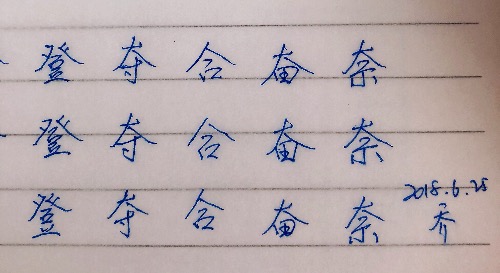 登 夺 合 奋 奈
登 夺 合 奋 奈
登 夺 合 奋 奈
2018.6.28
乔